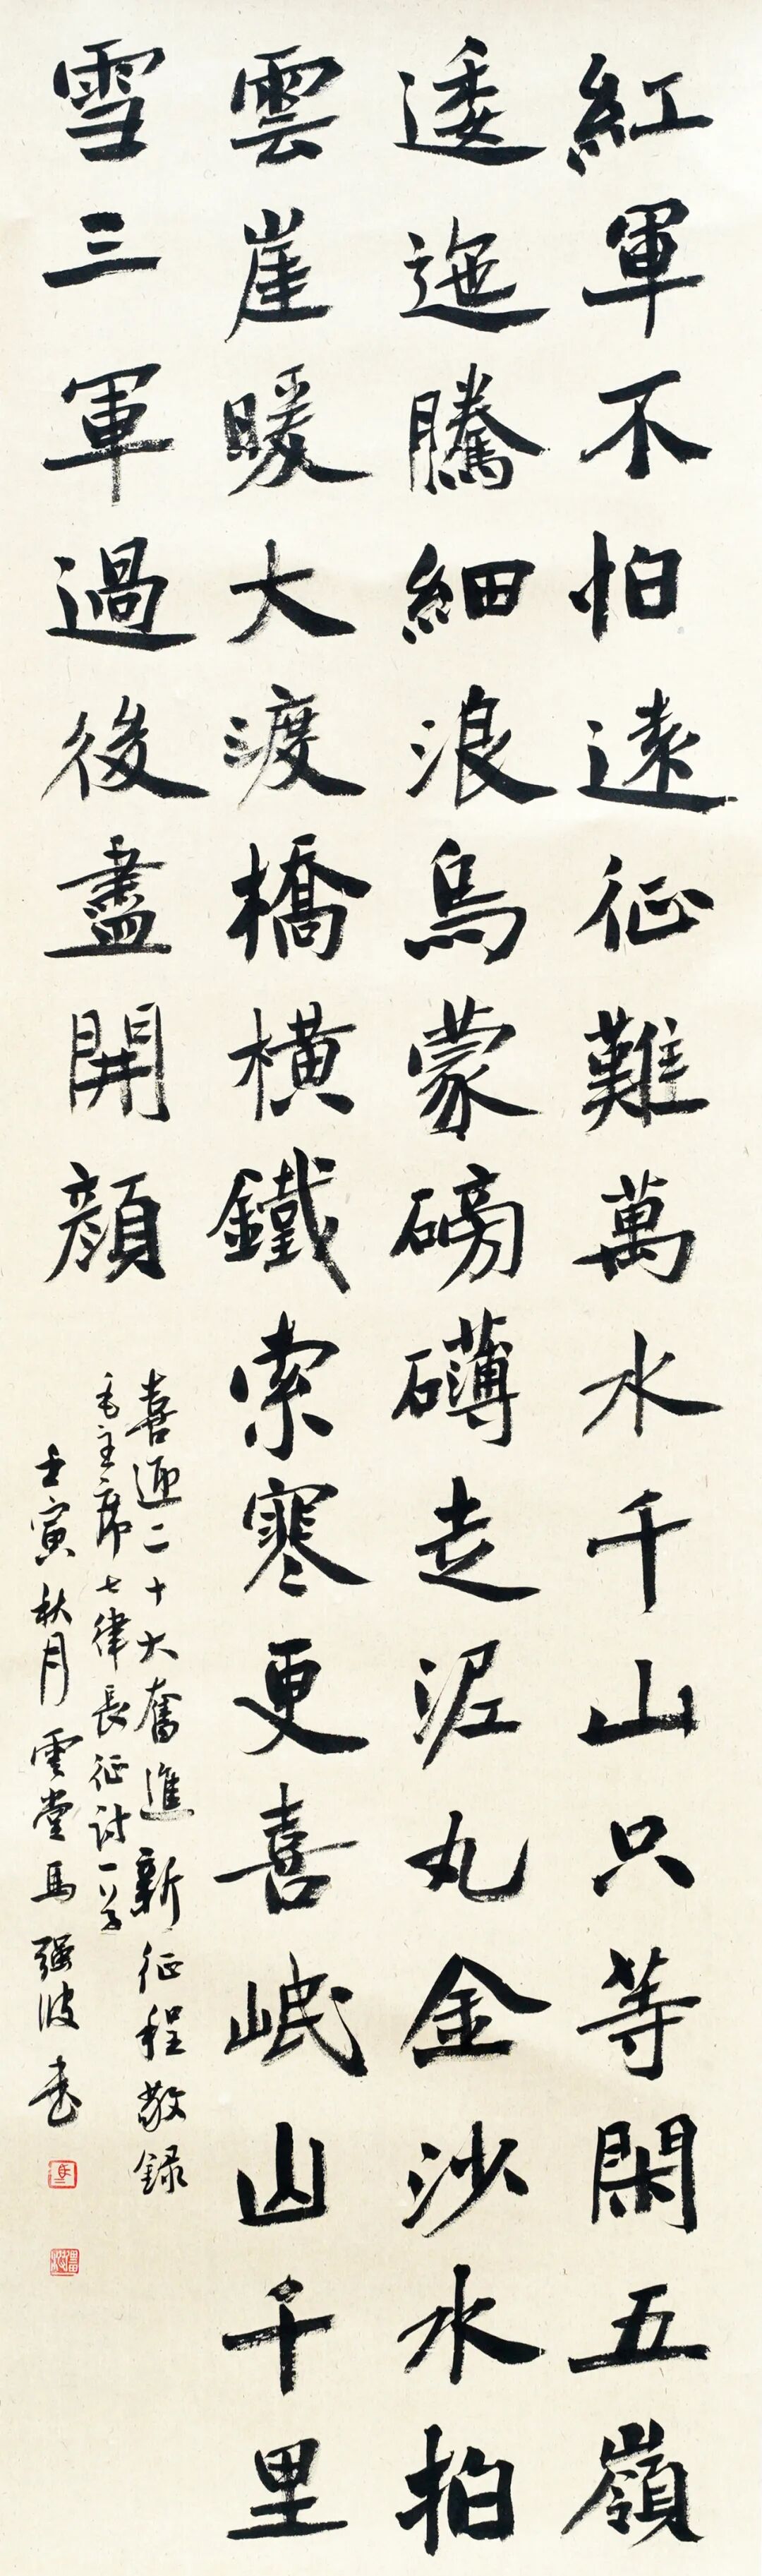 紅軍不怕遠征難萬水千山只等閑五嶺
逶迤騰細浪烏蒙磅礴走泥丸金沙水拍
雲崖暖大渡橋橫鐵索寒更喜岷山千里
雪三軍過後盡開顏
喜迎二十大奮進新征程敬録
毛主席七律長征詩一首
壬寅秋月雲堂馬強波書